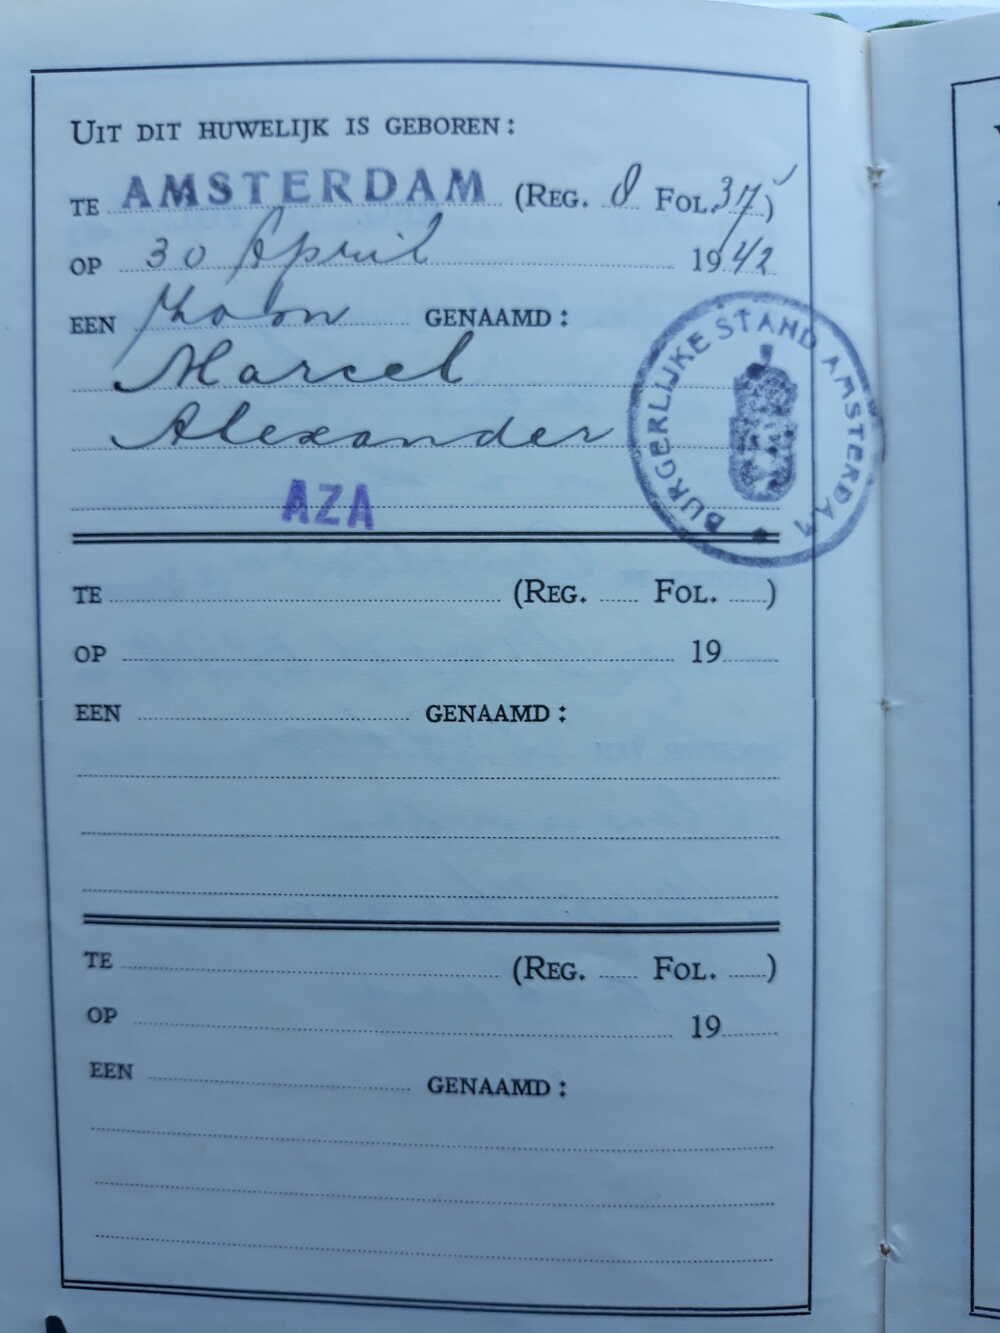 UIT DIT HUWELIJK IS GEBOREN:
TE AMSTERDAM (REG. 8 FOL. 37)
OP 30 April 1942
EEN Zoon GENAAMD:
Marcel
Alexander
BURGERLIJKE STAND AMSTERDAM
AZA
TE (REG. FOL. )
OP 19
EEN GENAAMD:
TE (REG. FOL. )
OP 19
EEN GENAAMD: